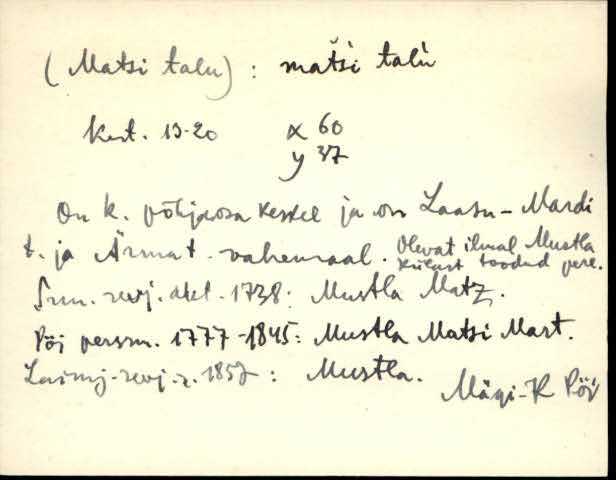 (Matsi talu) : mat̆śi talù
Kert. 13-20 x 60
y 37
On k. põhjaosa keskel ja on Laasu-Mardi
t. ja Ärma t. vahemaal. Olevat ilmal Mustla
külast toodud pere.
revj. akt. 1738: Mustla Matz.
Põj persm. 1777-1845: Mustla Matsi Mart.
revj. r. 1857: Mustla.
Mägi-K Põj